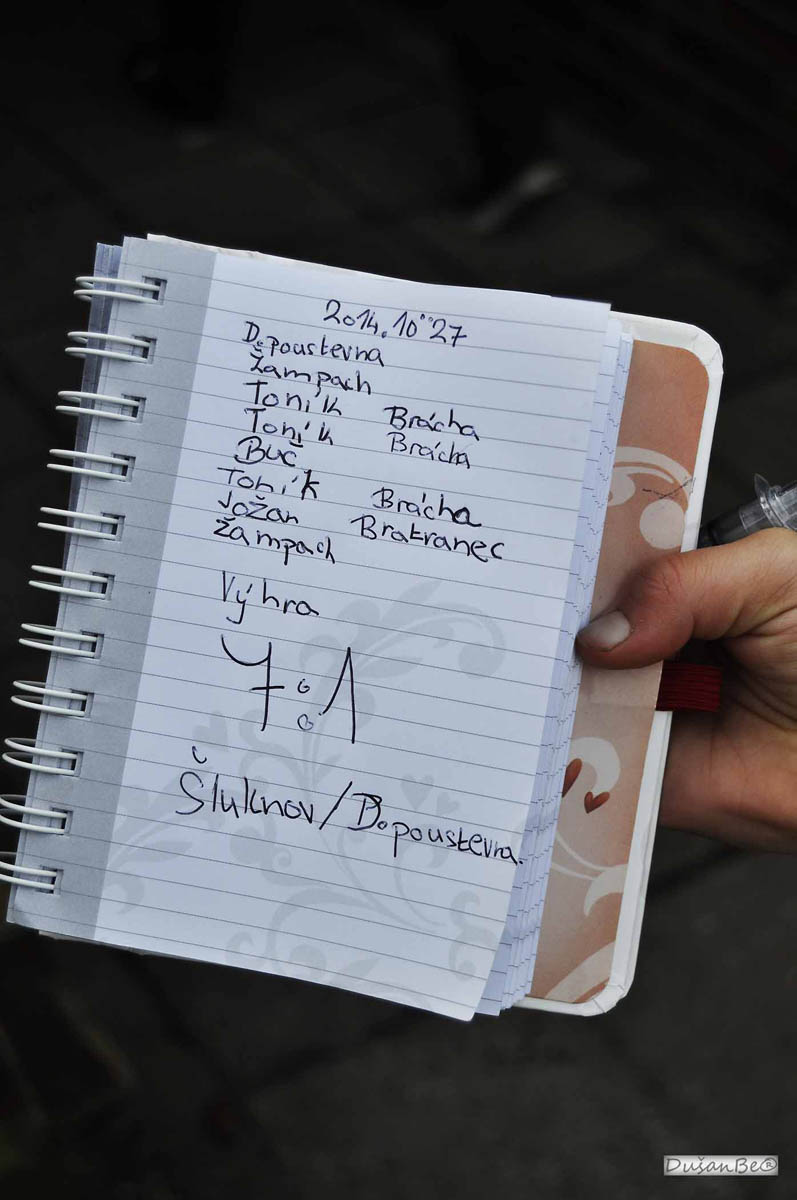 2014.10°°27
D.poustevna
Žampach
Toník Brácha
Toník Brácha
Buč
Toník Brácha
Jožan Bratranec
Žampach
Výhra
7:1
Šluknov/D.poustevna.
DušanBe®